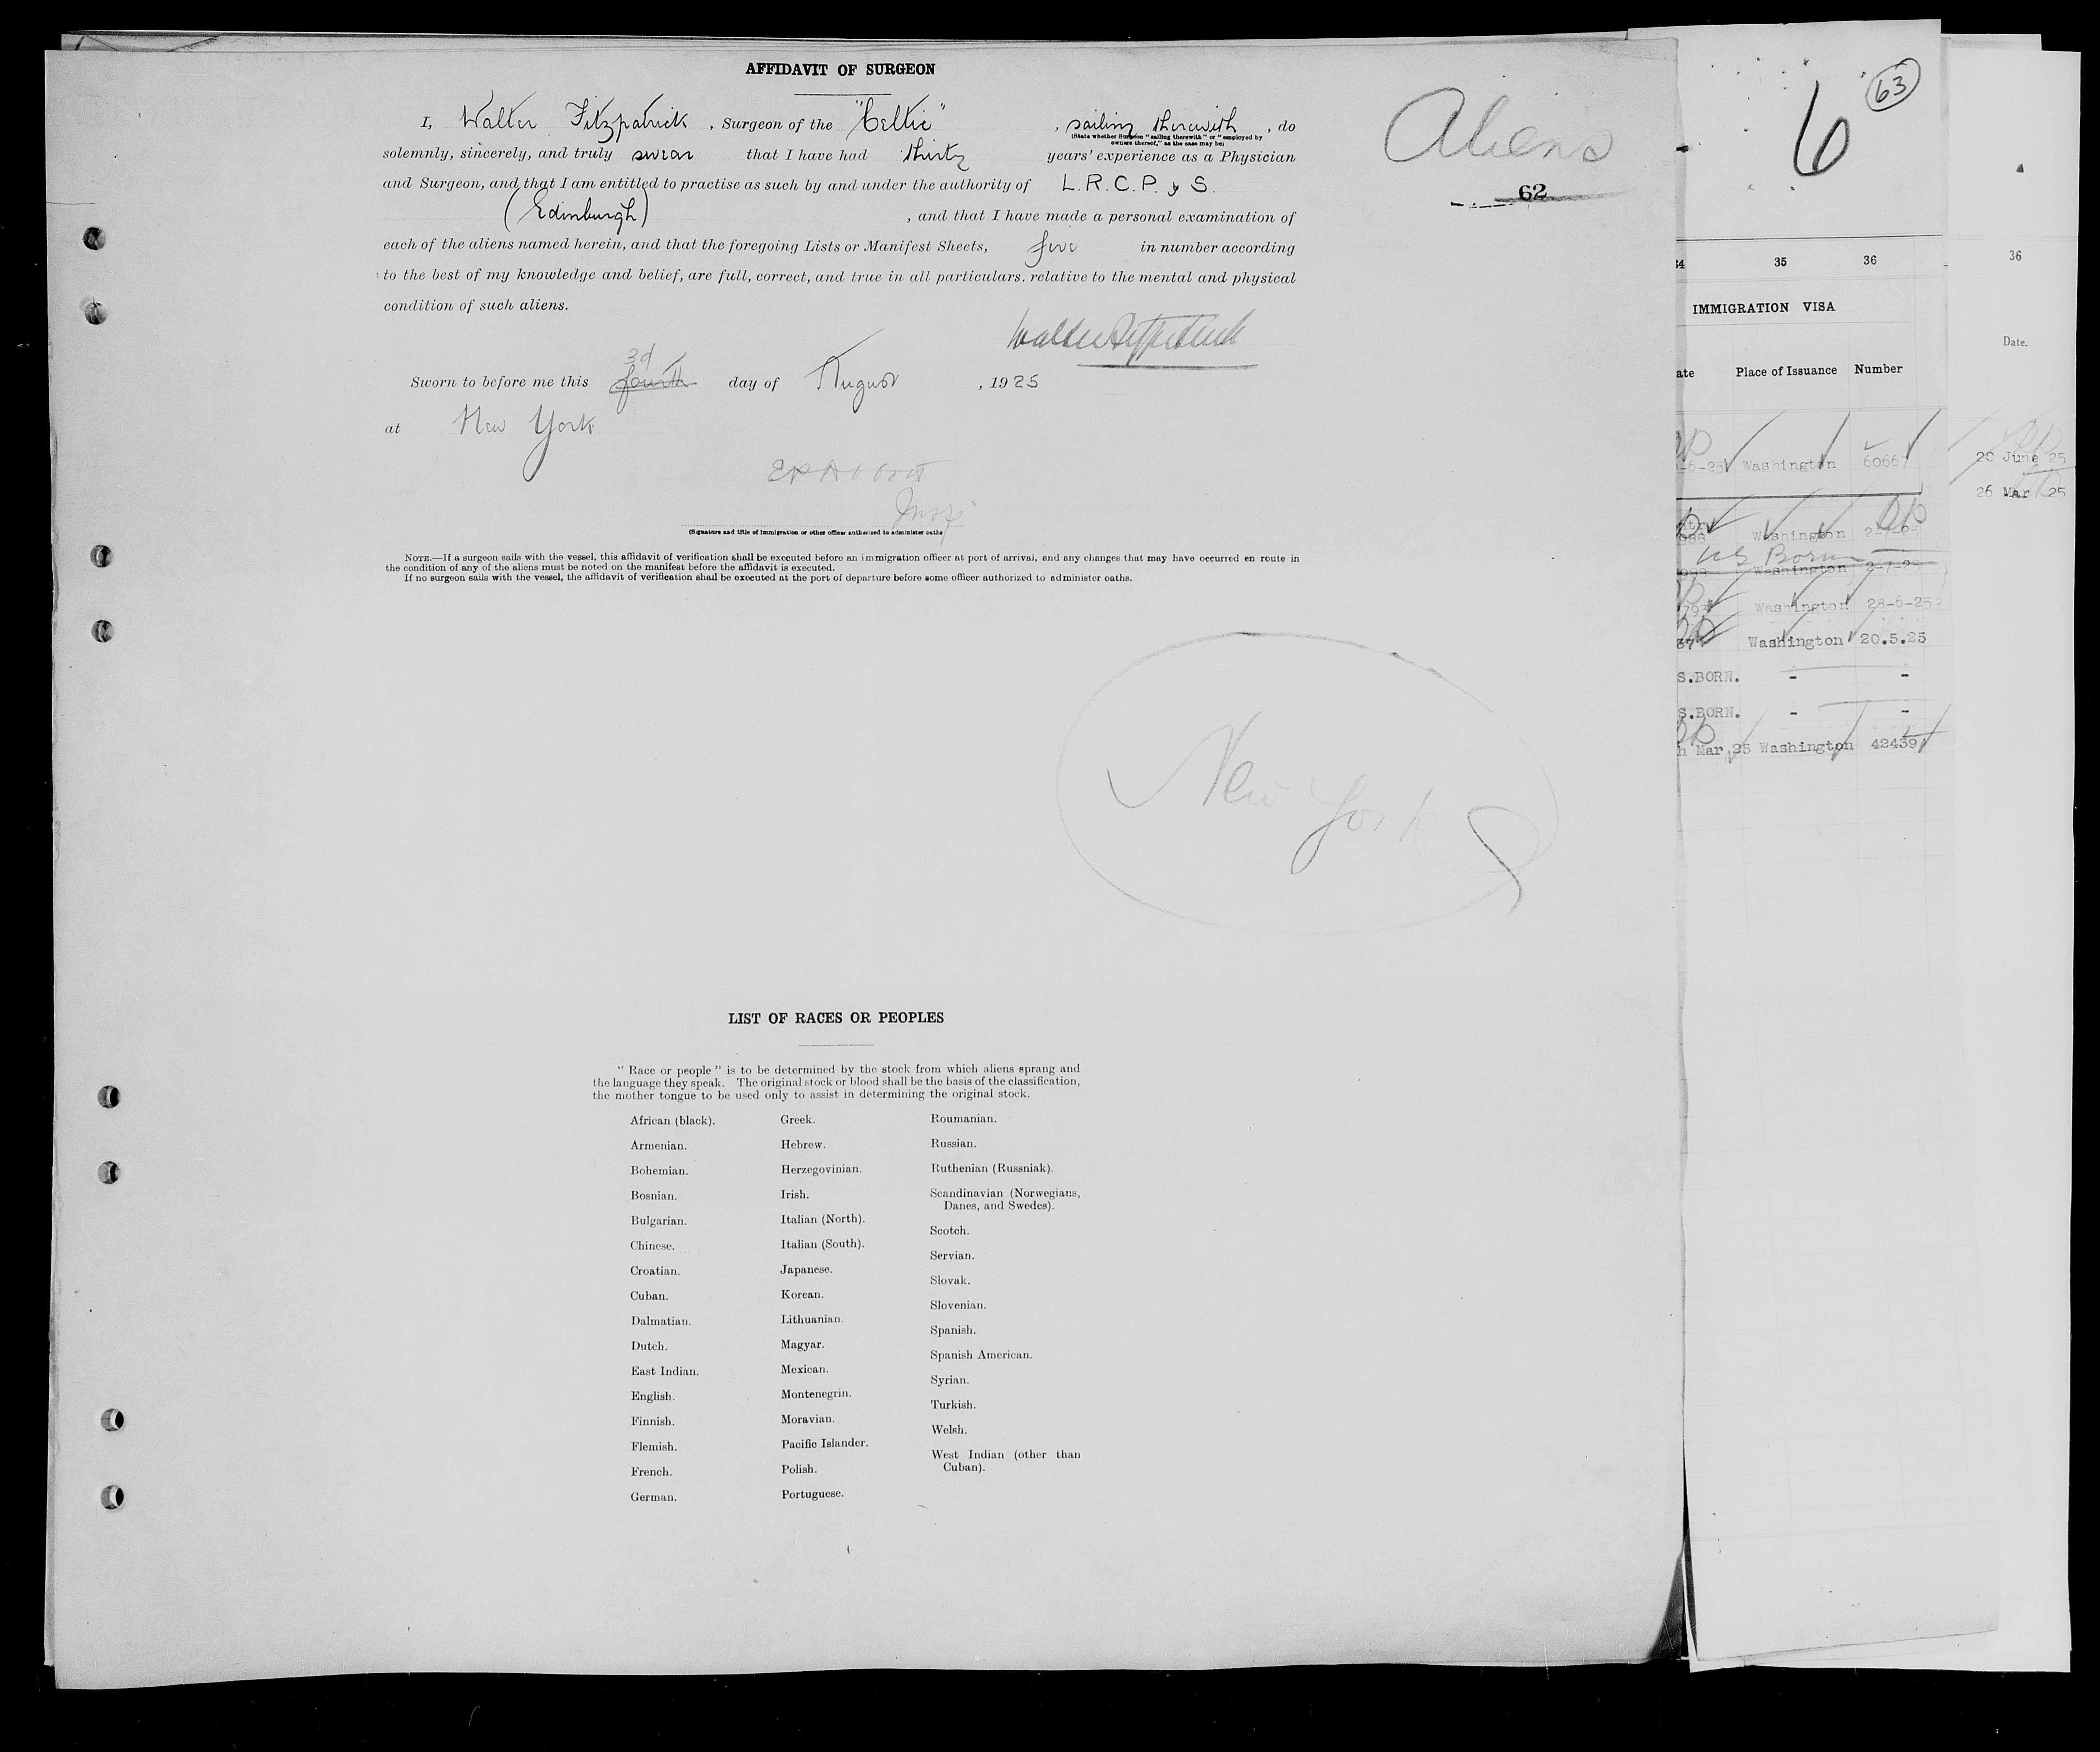 AFFIDAVIT OF SURGEON
I, Walter Fitzpatrick, Surgeon of the "Celtic", sailing therewith, do
(State whether Surgeon "sailing therewith" or "employed by
owners thereof," as the case may be)
solemnly, sincerely, and truly swear that I have had thirty years' experience as a Physician
and Surgeon, and that I am entitled to practise as such by and under the authority of L.R.C.P. & S.
(Edinburgh), and that I have made a personal examination of
each of the aliens named herein, and that the foregoing Lists or Manifest Sheets, five in number according
to the best of my knowledge and belief, are full, correct, and true in all particulars, relative to the mental and physical
condition of such aliens.
Walter Fitzpatrick
3d
Sworn to before me this fourth day of August, 1925
at New York
Insp
(Signature and title of immigration or other officer authorised to administer oaths
NOTE.—If a surgeon sails with the vessel, this affidavit of verification shall be executed before an immigration officer at port of arrival, and any changes that may have occurred en route in
the condition of any of the aliens must be noted on the manifest before the affidavit is executed.
If no surgeon sails with the vessel, the affidavit of verification shall be executed at the port of departure before some officer authorized to administer oaths.
Aliens
62
New York
LIST OF RACES OR PEOPLES
"Race or people" is to be determined by the stock from which aliens sprang and
the language they speak. The original stock or blood shall be the basis of the classification,
the mother tongue to be used only to assist in determining the original stock.
African (black).
Armenian.
Bohemian.
Bosnian.
Bulgarian.
Chinese.
Croatian.
Cuban.
Dalmatian.
Dutch.
East Indian.
English.
Finnish.
Flemish.
French.
German.
Greek.
Hebrew.
Herzegovinian.
Irish.
Italian (North).
Italian (South).
Japanese.
Korean.
Lithuanian.
Magyar.
Mexican.
Montenegrin.
Moravian.
Pacific Islander.
Polish.
Portuguese.
Roumanian.
Russian.
Ruthenian (Russniak).
Scandinavian (Norwegians,
Danes, and Swedes).
Scotch.
Servian.
Slovak.
Slovenian.
Spanish.
Spanish American.
Syrian.
Turkish.
Welsh.
West Indian (other than
Cuban).
6
63
34 35 36
IMMIGRATION VISA
ate Place of Issuance Number
-6-25 Washington 60667
Washington 2-7-25
US Born
Washington 2-7-25
Washington 23-6-25
Washington 20.5.25
S.BORN. - -
S.BORN. - -
h Mar 25 Washington 42439
36
Date.
20 June 25
26 Mar 25